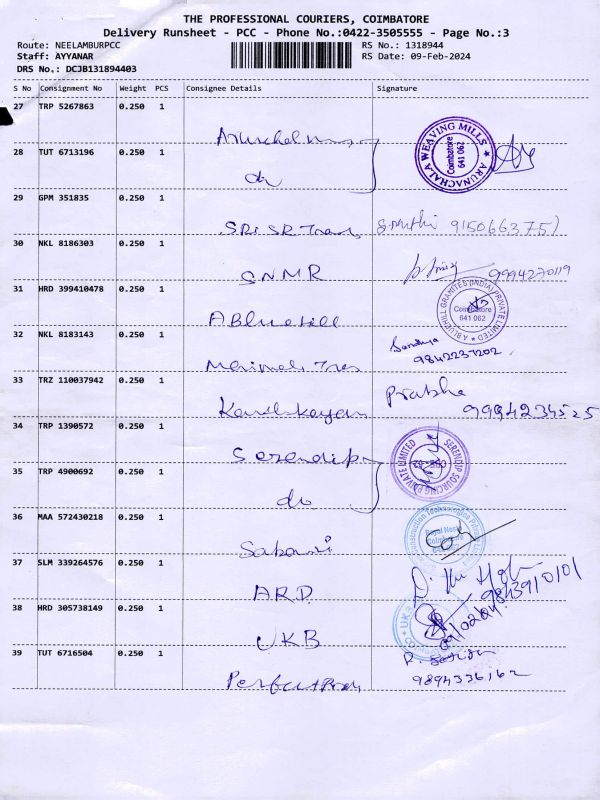 THE PROFESSIONAL COURIERS, COIMBATORE
Delivery Runsheet - PCC - Phone No.:0422-3505555 - Page No.:3
Route: NEELAMBURPCC RS No.: 1318944
Staff: AYYANAR RS Date: 09-Feb-2024
DRS No.: DCJB131894403
S No Consignment No Weight PCS Consignee Details Signature
27 TRP 5267863 0.250 1
28 TUT 6713196 0.250 1 do
ARUNACHALA WEAVING MILLS
Coimbatore
641 062
29 GPM 351835 0.250 1
SRI SR Trans
30 NKL 8186303 0.250 1
SNMR 9994270119
31 HRD 399410478 0.250 1
A Bluehill
A BLUEHILL GRANITES (INDIA) PRIVATE LIMITED
Coimbatore
641 062
32 NKL 8183143 0.250 1
Sandhya
9842237202
33 TRZ 110037942 0.250 1
Prabha
9994234525
34 TRP 1390572 0.250 1
Serendip
SERENDIP SOURCING PRIVATE LIMITED
35 TRP 4900692 0.250 1
do
36 MAA 572430218 0.250 1
Sabari
37 SLM 339264576 0.250 1
A.R.D 9843910101
38 HRD 305738149 0.250 1
UKB 09/02/24
39 TUT 6716504 0.250 1
9894336162